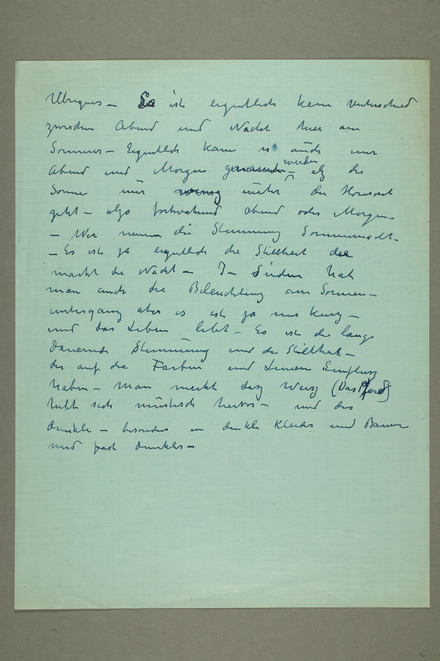 Übrigens – Es ist eigentlich kein Unterschied
zwischen Abend und Nacht hier am
Sommer – Eigentlich kann es auch nur
Abend und Morgen genannt werden – als die
Sonne nur wenig unter der Horisont
geht – also fortwärend Abend oder Morgen –
– Wir nennen die Stimmung Sommernacht –
– Es ist ja eigentlich die Stillheit die
macht die Nacht – Im Süden hat
man auch die Beleuchtung am Sonnen-
untergang aber es ist ja nur kurz –
und das Leben lebt – Es ist die lange
dauernde Stimmung und die Stillheit –
die auf die Farben und Linien Einfluss
haben – Man merkt das Weiss (Das Pferd)
hebt sich mystisch hervor – und das
dunkle – besonders in dunkle Kleider und Bäume
wird fast dunkler –